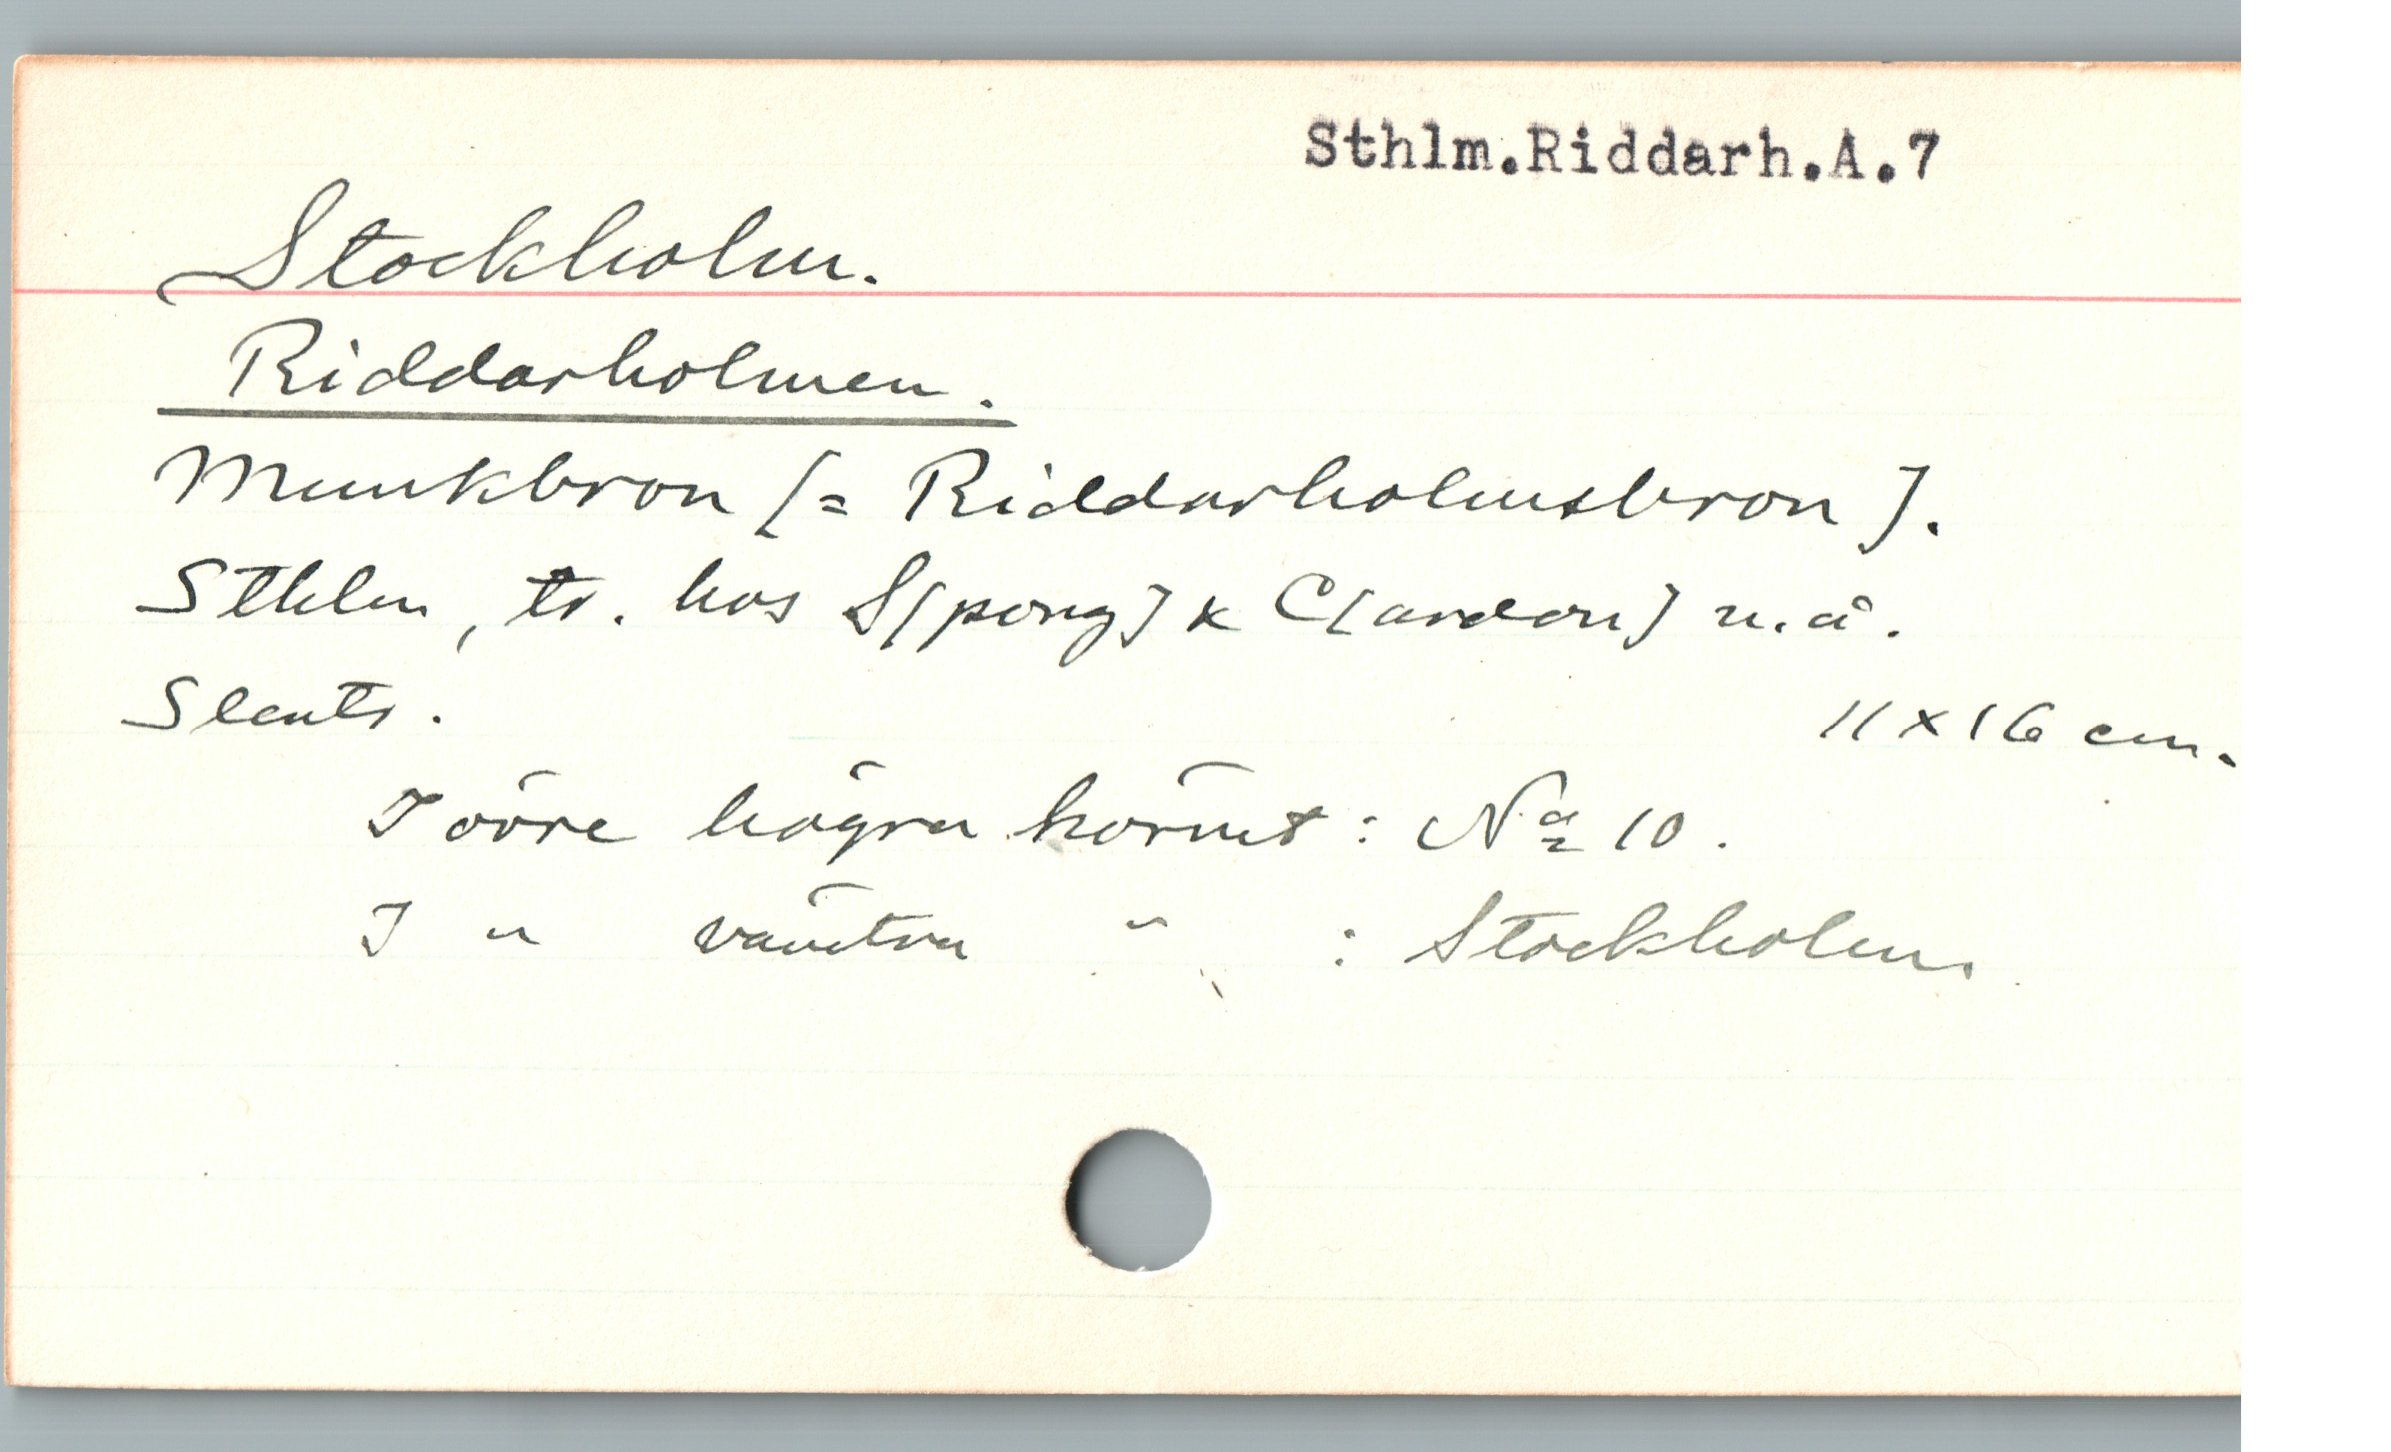 Sthlm.Riddarh.A.7
Stockholm.
Riddarholmen.
Munkbron [= Riddarholmsbron].
Sthlm, tr. hos S[pong] & C[ardon] u.å.
Stentr. 11 x 16 cm.
I övre högra hörnet: No 10.
I " vänstra " : Stockholm.